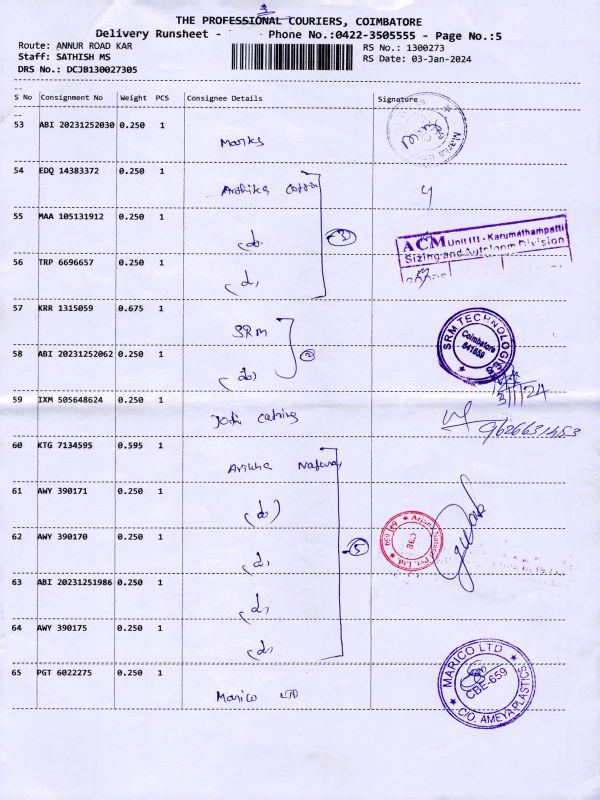 3
THE PROFESSIONAL COURIERS, COIMBATORE
Delivery Runsheet - Phone No.:0422-3505555 - Page No.:5
Route: ANNUR ROAD KAR
RS No.: 1300273
Staff: SATHISH MS
RS Date: 03-Jan-2024
DRS No.: DCJB130027305
S No Consignment No Weight PCS Consignee Details Signature
53 ABI 20231252030 0.250 1 Marks
54 EDQ 14383372 0.250 1
55 MAA 105131912 0.250 1 (do)
3
ACM Unit III - Karumathampatti
Sizing and Autoloom Division
56 TRP 6696657 0.250 1 (d)
57 KRR 1315059 0.675 1 SRM
SRM TECHNOLOGIES
Coimbatore
641659
2
58 ABI 20231252062 0.250 1 (do)
3/1/24
59 IXM 505648624 0.250 1
60 KTG 7134595 0.595 1
61 AWY 390171 0.250 1 (do)
62 AWY 390170 0.250 1 (d)
5
63 ABI 20231251986 0.250 1 (d)
64 AWY 390175 0.250 1 (d)
65 PGT 6022275 0.250 1 Marico LTD
MARICO LTD
CBE-659
C/O. AMEYA PLASTICS